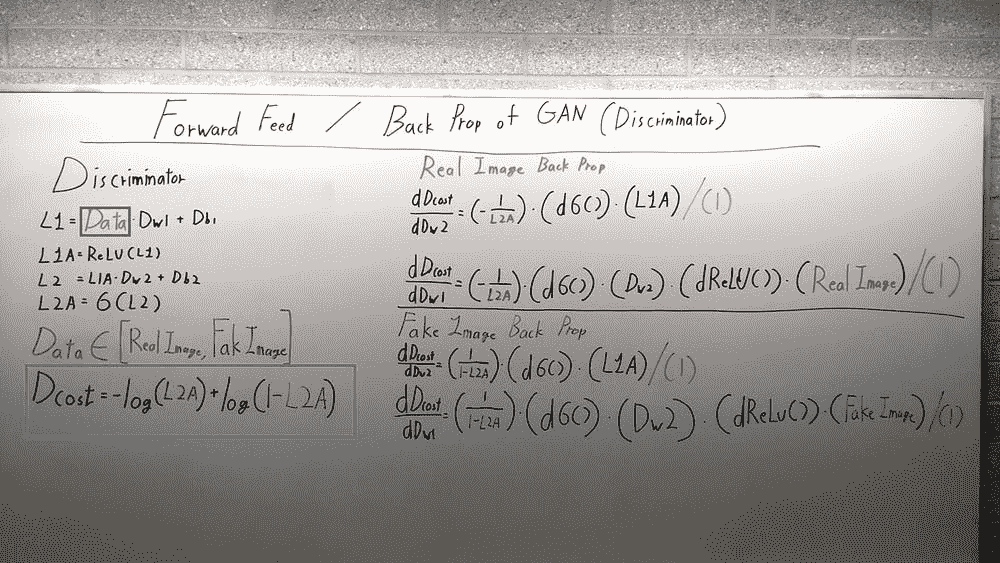 Forward Feed / Back Prop of GAN (Discriminator)
Discriminator
L1 = Data · Dw1 + Db1
L1A = ReLU(L1)
L2 = L1A · Dw2 + Db2
L2A = б(L2)
Data ∈ [Real Image, Fak Image]
Dcost = -log(L2A) + log(1-L2A)
Real Image Back Prop
dDcost/dDw2 = (-1/L2A) · (dб()) · (L1A) / (1)
dDcost/dDw1 = (-1/L2A) · (dб()) · (Dw2) · (dReLU()) · (Real Image) / (1)
Fake Image Back Prop
dDcost/dDw2 = (1/1-L2A) · (dб()) · (L1A) / (1)
dDcost/dDw1 = (1/1-L2A) · (dб()) · (Dw2) · (dReLu()) · (Fake Image) / (1)